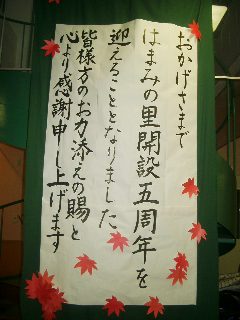 おかげさまで
はまみの里開設五周年を
迎えることとなりました
皆様方のお力添えの賜と
心より感謝申し上げます